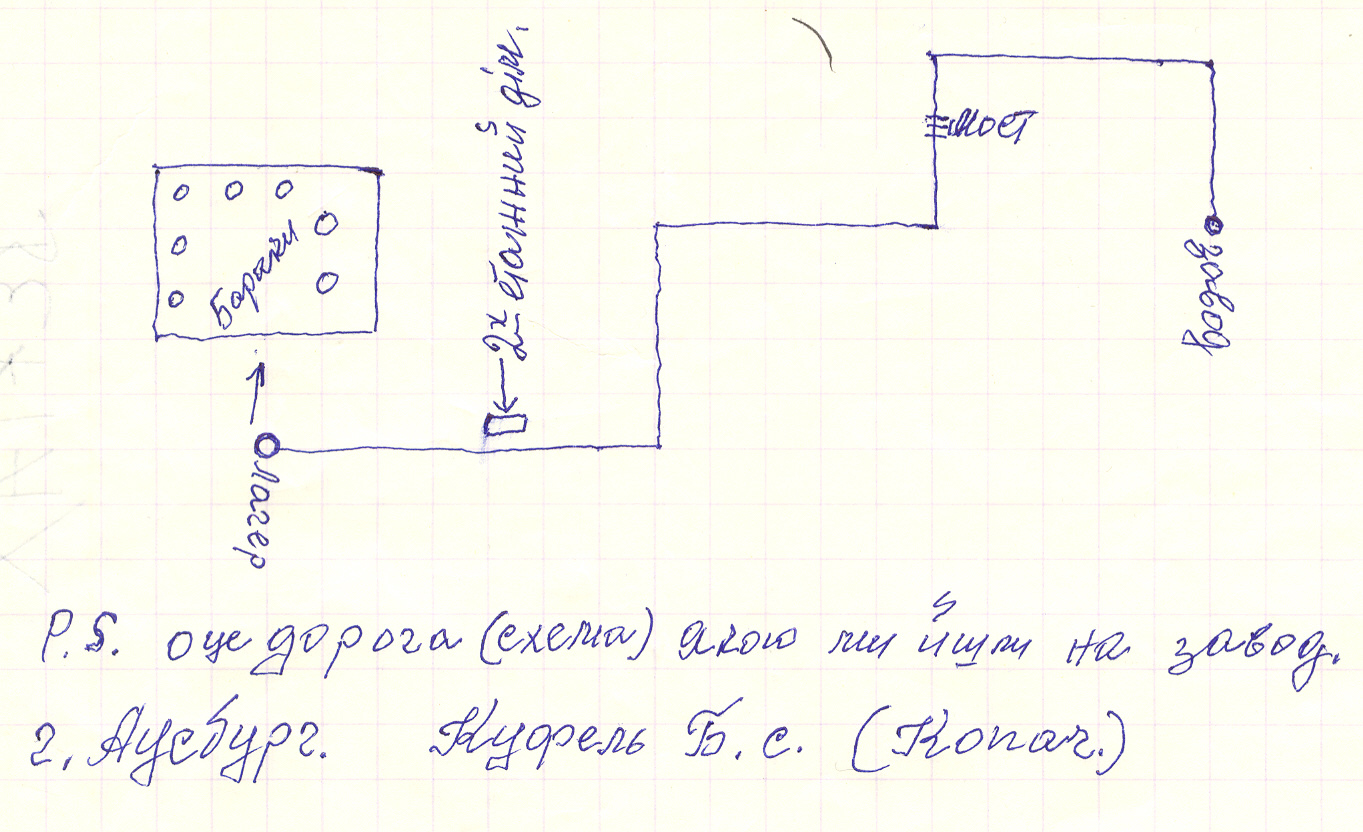 2х етажний дім.
мост
бараки
завод
лагер
P.S. оце дорога (схема) якою ми йшли на завод.
г. Аусбург. Куфель Б.с. (Копач.)